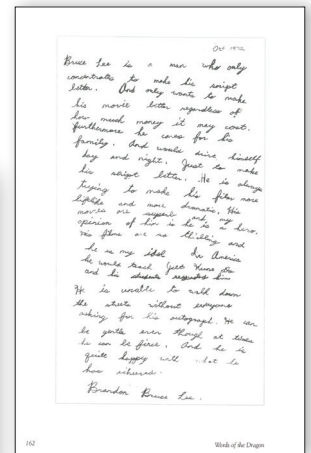 Oct 1972
Bruce Lee is a man who only
concentrates to make his script
better. And only wants to make
his movie better regardless of
how much money it may cost.
furthermore he cares for his
family. And would drive himself
day and night, Just to make
his script better. He is always
trying to make his film more
lifelike and more dramatic, His
movies are superb and my
opinion of him is he is a hero,
His films are so thilling and
he is my idol In America
he would teach Jeet Kune Do
and his students respected him
He is unable to walk down
the streets without everyone
asking for his autograph. He can
be gentle even though at times
he can be firce, And he is
quite happy with what he
has achieved.
Brandon Bruce Lee.
162
Words of the Dragon